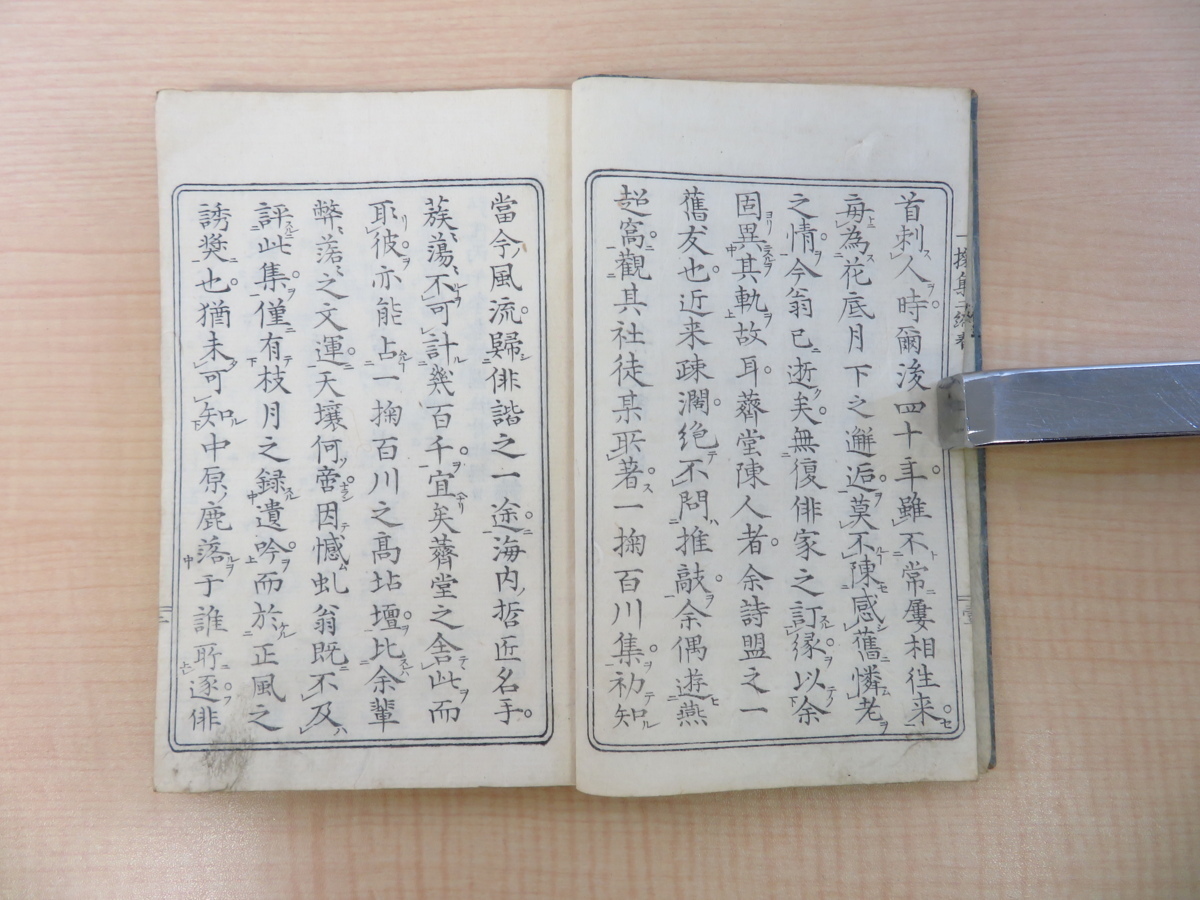 首刺人時爾後四十年雖不常屢相往来
毎為花底月下之邂逅莫不陳感舊憐老
之情今翁已逝矣無復俳家之訂縁以余
固異其軌故耳薺堂陳人者余詩盟之一
舊友也近来疎濶絶不問推敲余偶遊燕
超窩觀其社徒某所著一掬百川集初知
當今風流歸俳諧之一途海内哲匠名手
蔟〻蕩〻不可計幾百千宜矣薺堂之舎此而
耽彼亦能占一掬百川之髙坫壇比余輩
弊〻落〻之文運天壤何啻因憾虬翁既不及
評此集僅有枝月之録遺吟而於正風之
誘奨也猶未可知中原鹿落于誰所逐俳